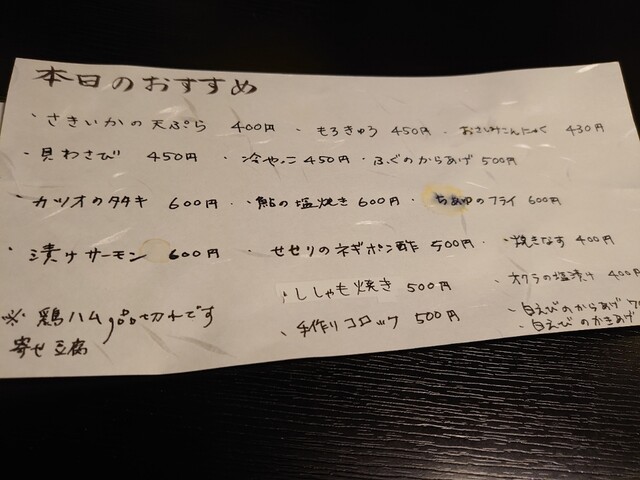 本日のおすすめ
・さきいかの天ぷら 400円 ・もろきゅう 450円 ・おさしみこんにゃく 430円
・貝わさび 450円 ・冷やっこ 450円 ・ふぐのからあげ 500円
・カツオのタタキ 600円 ・鮎の塩焼き 600円 ・ちあゆのフライ 600円
・漬けサーモン 600円 ・せせりのネギポン酢 500円 ・焼きなす 400円
・ししゃも焼き 500円 ・オクラの塩漬け 400
※鶏ハム 品切れです ・手作りコロッケ 500円 ・白えびのからあげ
寄せ豆腐 ・白えびのかきあげ